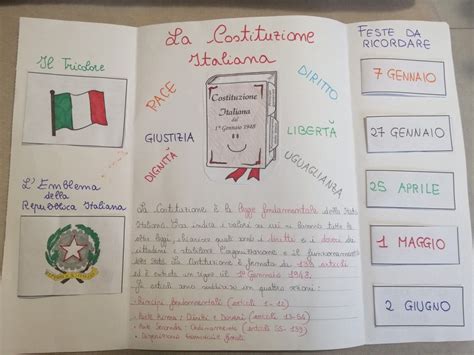 Il Tricolore
L'Emblema
della
Repubblica Italiana
La Costituzione
Italiana
PACE
DIRITTO
GIUSTIZIA
LIBERTÀ
DIGNITÀ
UGUAGLIANZA
Costituzione
Italiana
del
1° Gennaio 1948
La Costituzione è la legge fondamentale dello Stato
Italiano. Essa indica i valori su cui si basano tutte le
altre leggi, chiarisce quali sono i diritti e i doveri dei
cittadini e stabilisce l'organizzazione e il funzionamento
dello Stato. La Costituzione è formata da 139 articoli
ed è entrata in vigore il 1° Gennaio 1948.
Gli articoli sono suddivisi in quattro sezioni:
- Principi fondamentali (articoli 1-12)
- Parte Prima: Diritti e Doveri (articoli 13-54)
- Parte Seconda: Ordinamento (articoli 55-139)
- Disposizioni transitorie e finali
FESTE DA
RICORDARE
7 GENNAIO
27 GENNAIO
25 APRILE
1 MAGGIO
2 GIUGNO